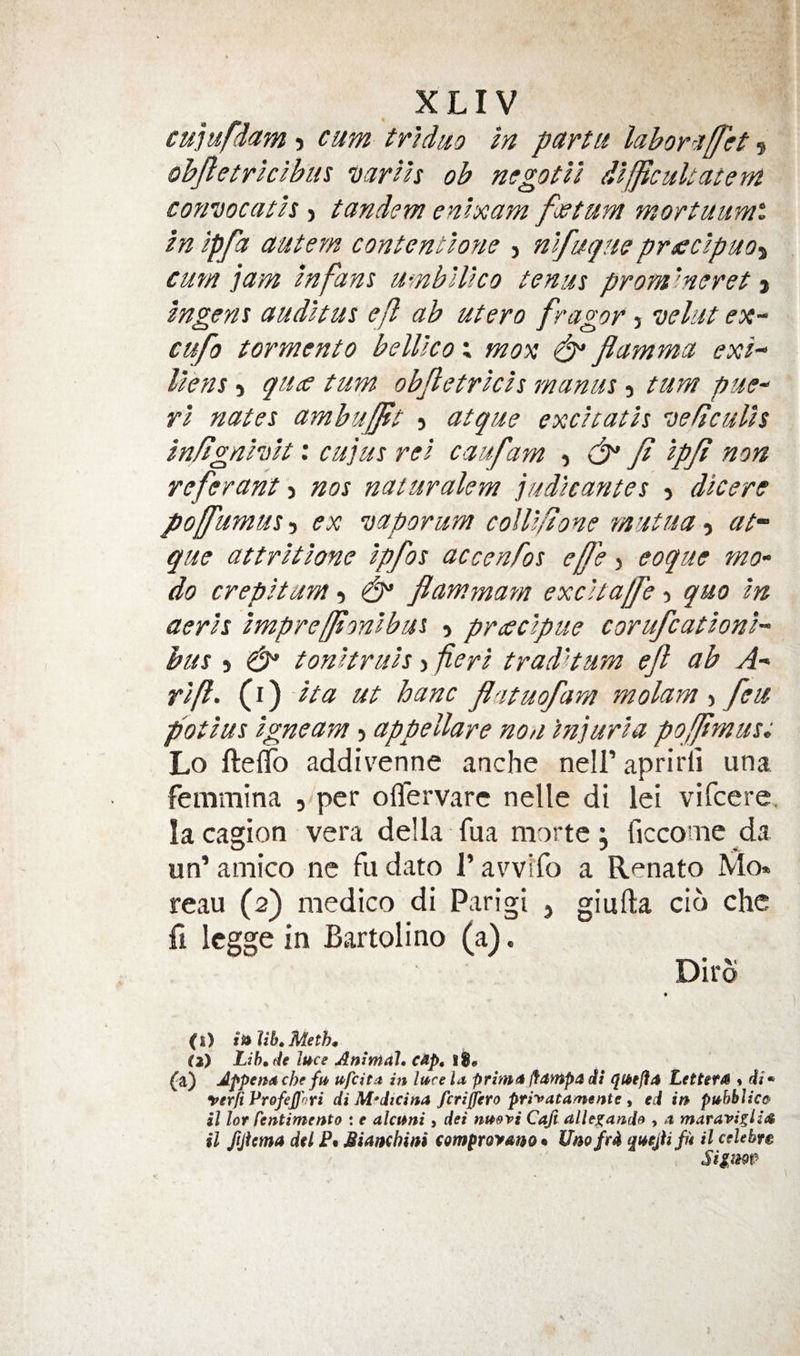 XLIV
cujuſdam, cum triduo in partu laboraſſet,
obſtetricibus variis ob negotii difficultatem
convocatis, tandem enixam fœtum mortuum:
in ipſa autem contentione, niſuque præcipuo,
cum jam infans umbilico tenus promineret,
ingens auditus eſt ab utero fragor, velut ex-
cuſo tormento bellico; mox & flamma exi-
liens, quæ tum obſtetricis manus, tum pue-
ri nates ambuſſit, atque excitatis veſiculis
inſignivit: cujus rei cauſam, & ſi ipſi non
referant, nos naturalem judicantes, dicere
poſſumus, ex vaporum colliſione mutua, at-
que attritione ipſos accenſos eſſe, eoque mo-
do crepitum, & flammam excitaſſe, quo in
aeris impreſſionibus, præcipue coruſcationi-
bus, & tonitruis, fieri traditum eſt ab A-
riſt. (1) ita ut hanc flatuoſam molam, ſeu
potius igneam, appellare non injuria poſſimus.
Lo ſteſſo addivenne anche nell' aprirſi una
femmina, per oſſervare nelle di lei viſcere
la cagion vera della ſua morte; ſiccome da
un' amico ne fu dato l' avviſo a Renato Mo-
reau (2) medico di Parigi, giuſta ciò che
ſi legge in Bartolino (a).
Dirò
(1) in lib. Meth.
(2) Lib. de luce Animal. cap. 18.
(a) Appena che fu uſcita in luce la prima ſtampa di queſta Lettera, di-
verſi Profeſſori di Medicina ſcriſſero privatamente, ed in pubblico
il lor ſentimento: e alcuni, dei nuovi Caſi allegando, a maraviglia
il ſiſtema del P. Bianchini comprovano. Uno frà queſti fù il celebre
Signor